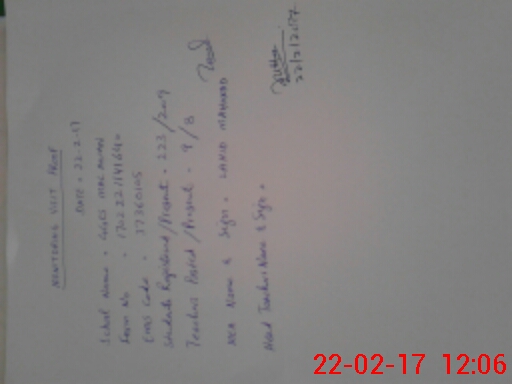 MONITORING VISIT PROOF
DATE = 22-2-17
School Name = GGES
Form No = 
EMIS Code = 37360105
Students Registered/Present = 223/209
Teachers Posted/Present = 9/8
MEA Name & Sign = MAHMOOD
Head Teacher Name & Sign =
22/2/2017
22-02-17 12:06